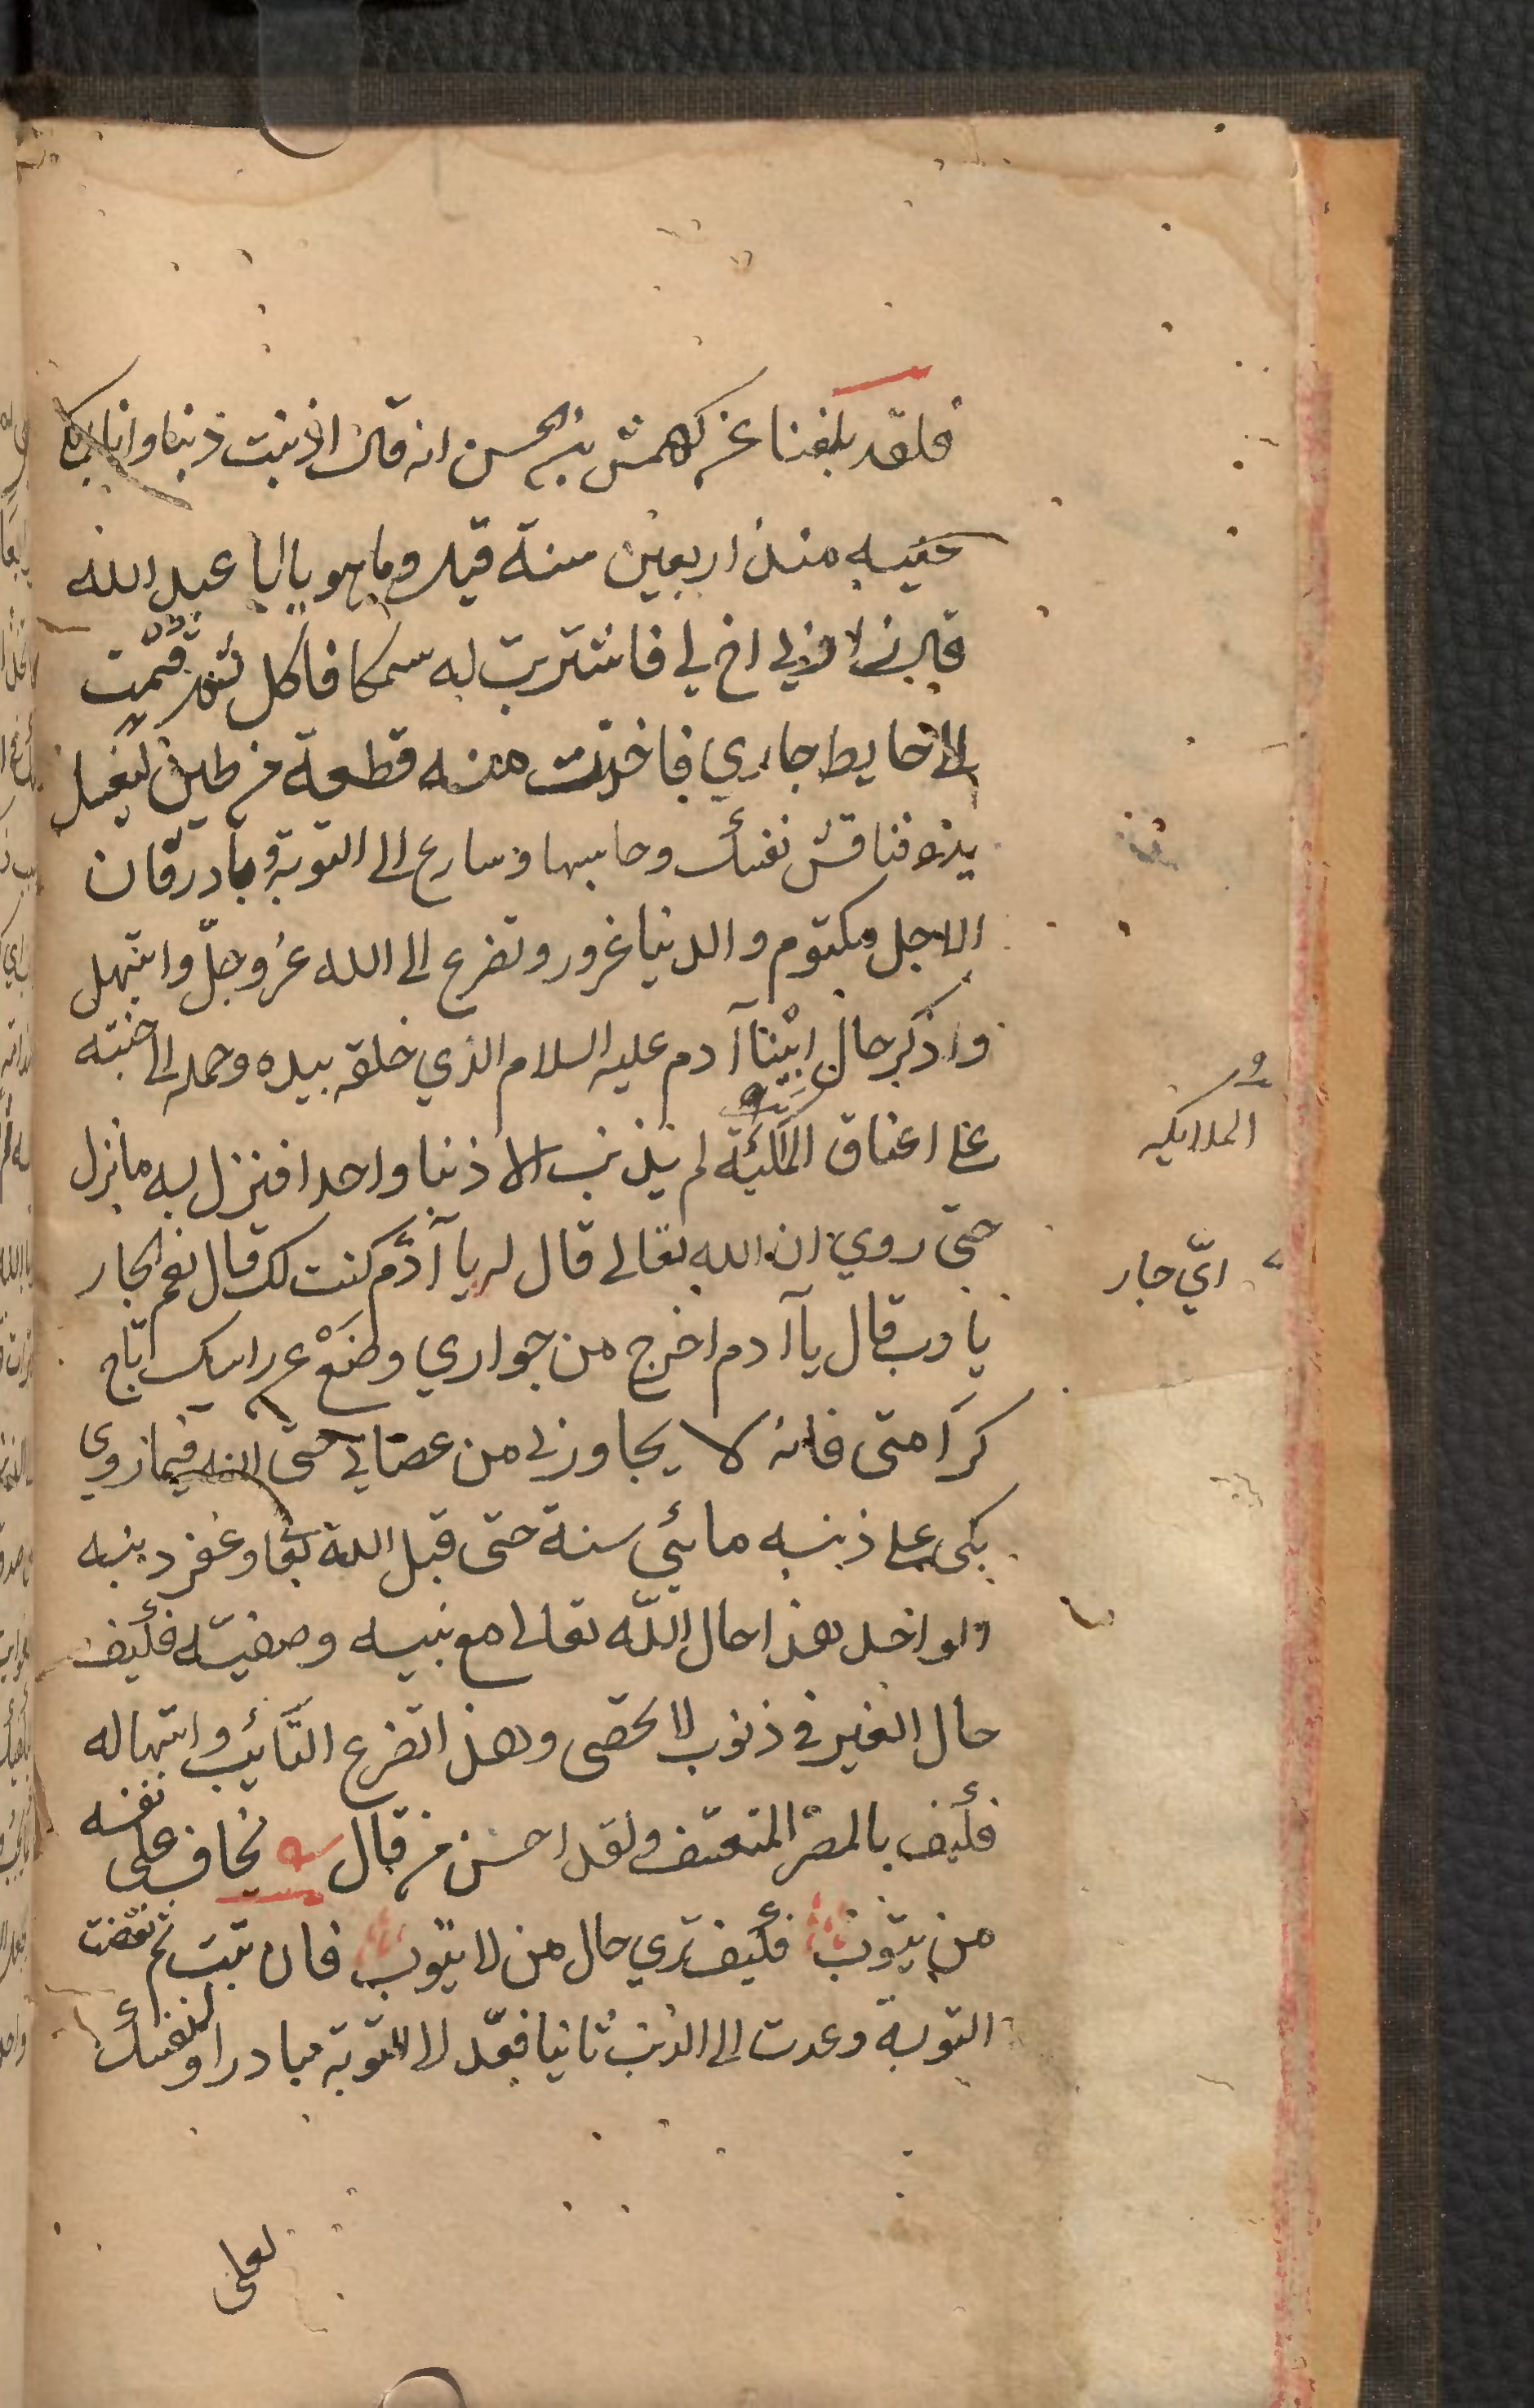 فلقد بلغنا عن كهمش بن الحسن انه قال اذنبت ذنبا وانا ابكي
عليه منذ اربعين سنة قيل وما هو يا ابا عبد الله
قال زارني اخ لي فاشتريت له سمكا فاكل ثم قمت
الى حايط جاري فاخذت منه قطعة من طين ليغسل
يده فناقش نفسك وحاسبها وسارع الى التوبة وبادر فان
الاجل مكتوم والدنيا غرور وتضرع الى الله عز وجلّ وابتهل
واذكر حال ابينا آدم عليه السلام الذي خلقه بيده وحمله الى جنته
على اعناق الملئكة لم يذنب الا ذنبا واحدا فنزل به ما نزل
حتى روي ان الله تعالى قال له يا آدم كنت لك قال نعم الجار
يا رب قال يا آدم اخرج من جواري وضع عن راسك تاج
كرامتى فانه لا يجاورنى من عصاني حتى انه فيما روي
بكى على ذنبه مائتي سنة حتى قبل الله تعا وغفر ذنبه
الواحد هذا حال الله تعالى مع نبيه وصفيّه فكيف
حال الغير في ذنوب لا تحصى وهذا تضرع التائب وابتهاله
فكيف بالمصرّ المتعسّف ولقد احسن من قال يخاف على نفسه
من يتوب فكيف ترى حال من لا يتوب فان تبت ثم نقضت
التوبة وعدت الى الذنب ثانيا فعد الى التوبة مبادرا لنفسك
الملايكه
ايّ جار